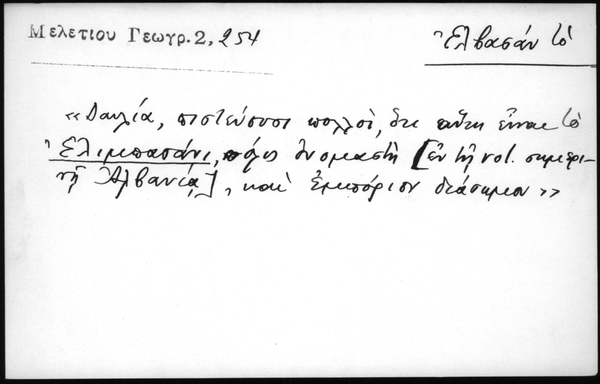 Μελετίου Γεωγρ. 2, 254
Ἐλβασάν τό
«Δαυλία, πιστεύουσι πολλοί, ὅτι αὕτη εἶναι τό
Ἐλιμπασάνι, πόλις ὀνομαστή [ἐν τῇ νοτ. σημερι-
νῇ Ἀλβανίᾳ], καί ἐμπόριον διάσημον»